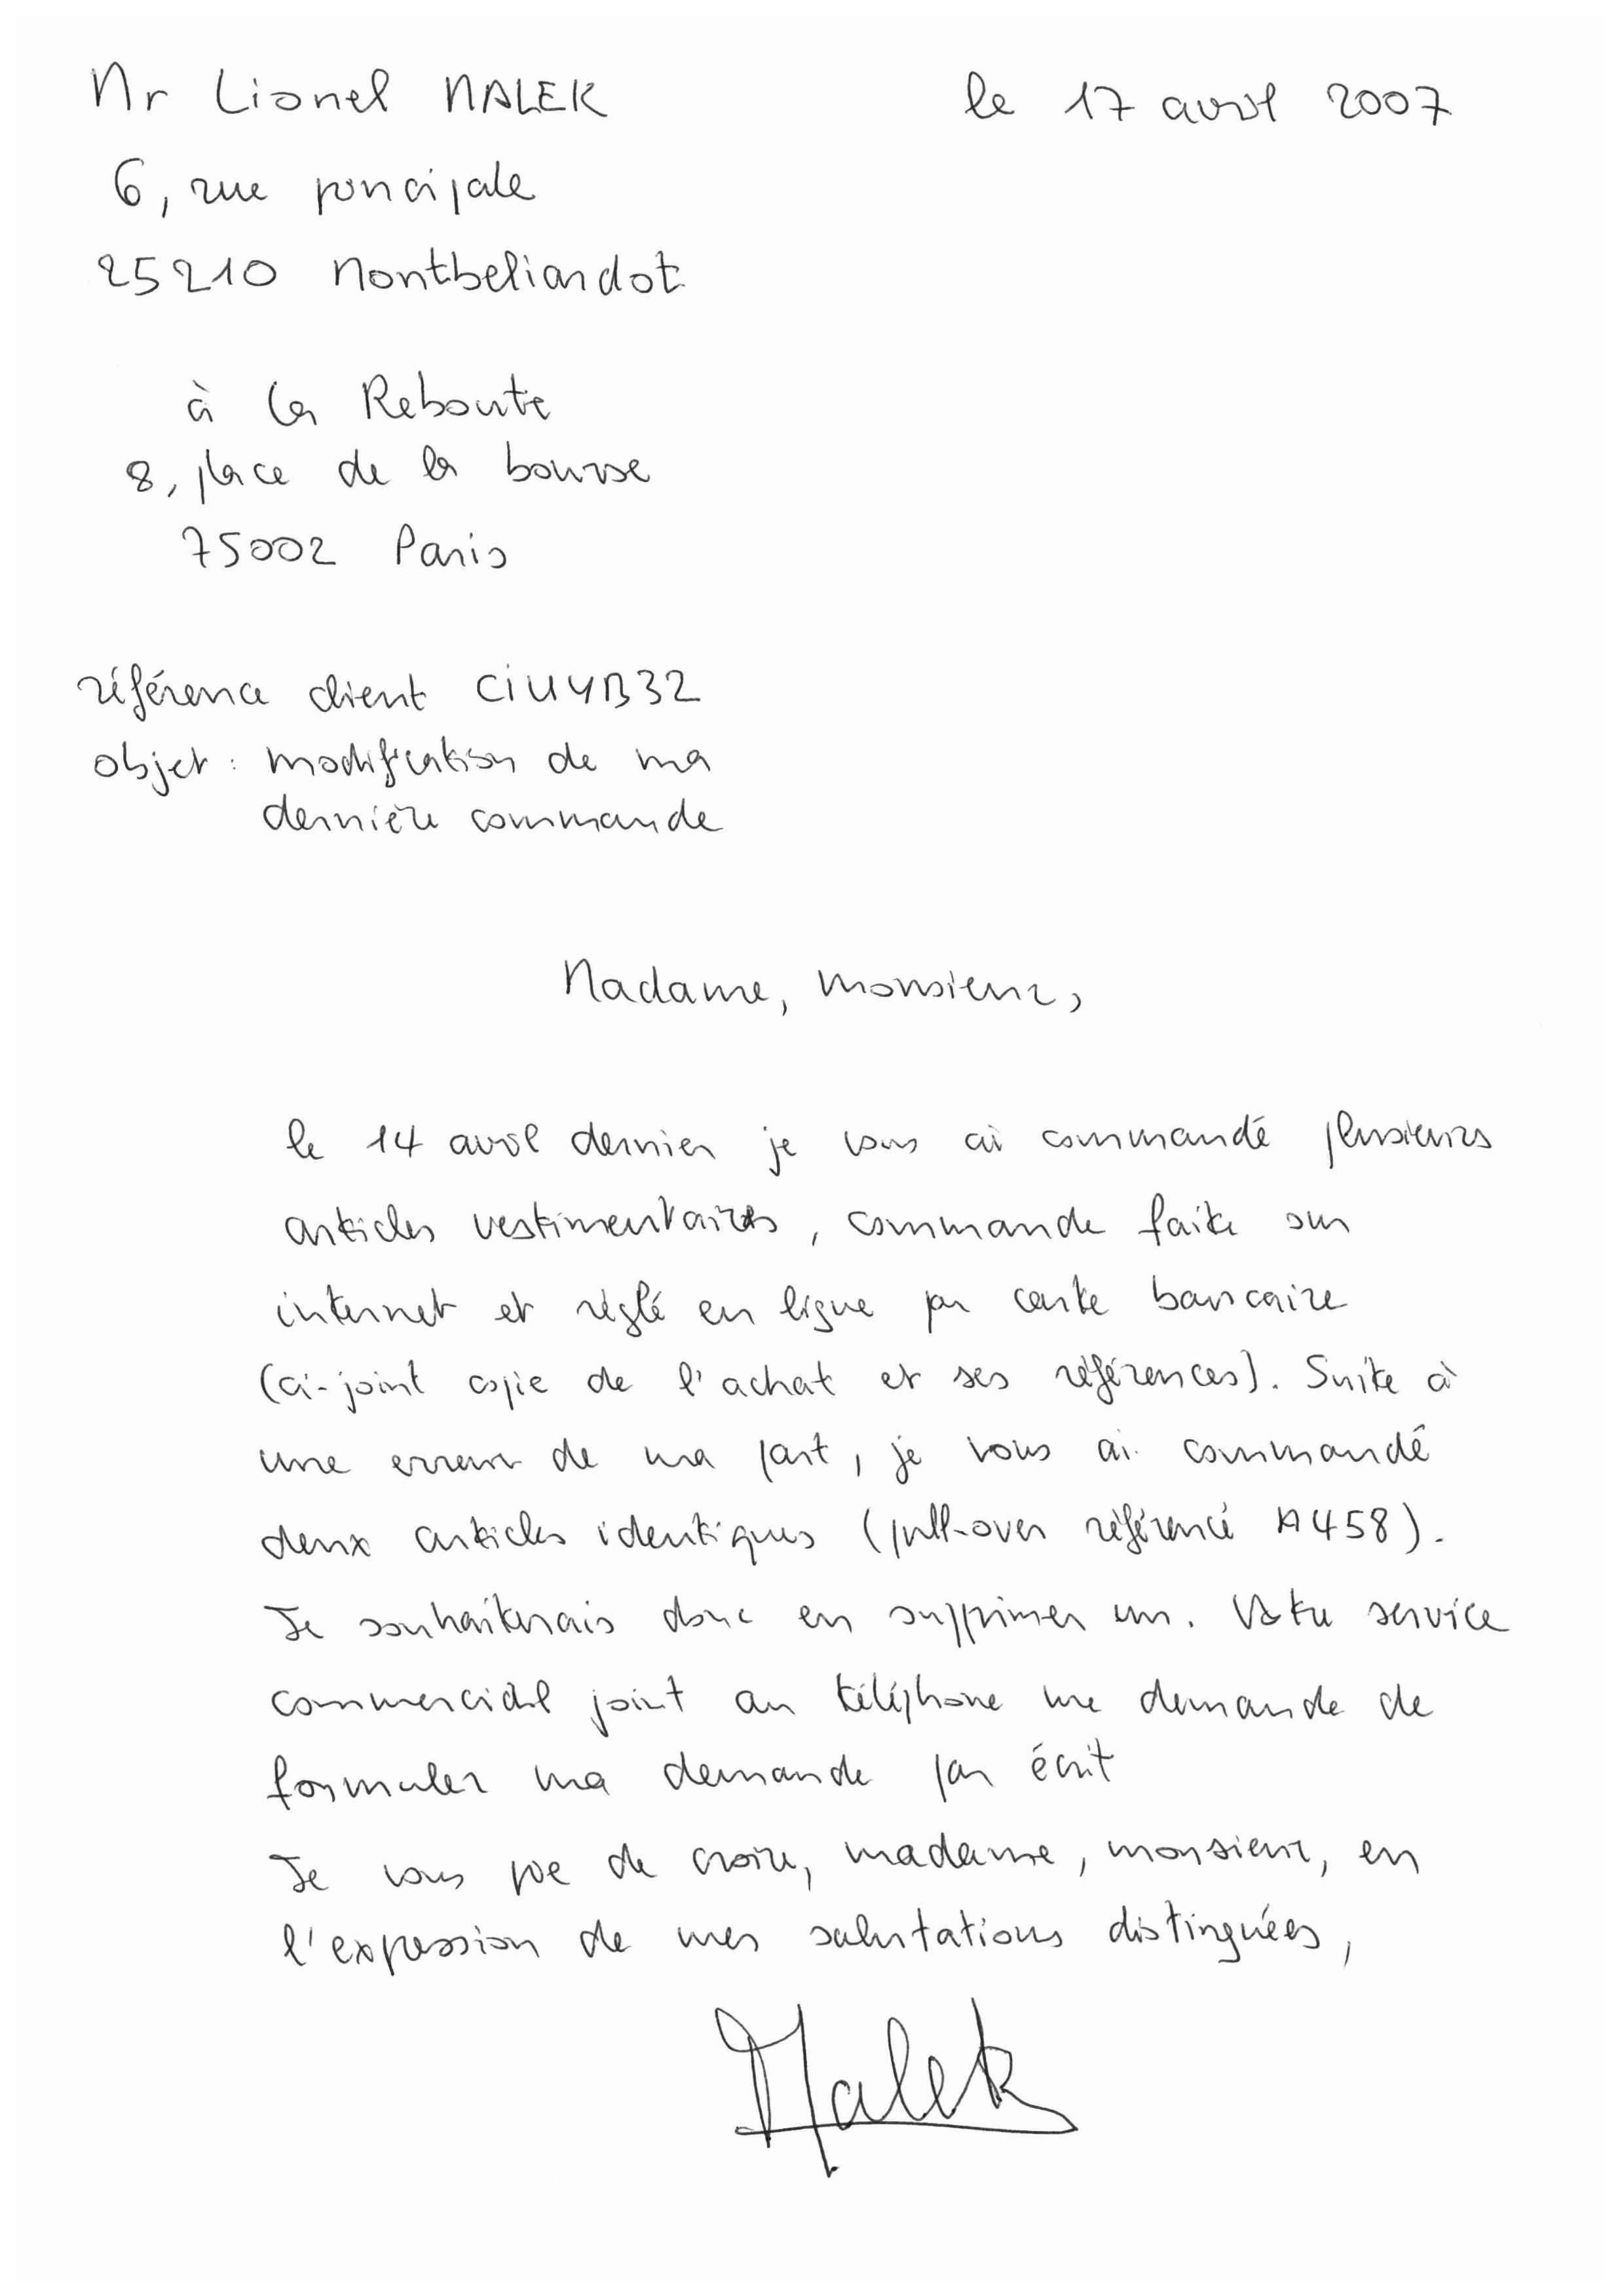 Mr Lionel MALEK
le 17 avril 2007
6, rue principale
25210 Montbeliardot
à la Reboute
8, place de la bourse
75002 Paris
référence client CiUYB32
objet : modification de ma
dernière commande
Madame, Monsieur,
le 14 avril dernier je vous ai commandé plusieurs
articles vestimentaires, commande faite sur
internet et réglé en ligne par carte bancaire
(ci-joint copie de l'achat et ses références). Suite à
une erreur de ma part, je vous ai commandé
deux articles identiques (pull-over référencé A458).
Je souhaiterais donc en supprimer un. Votre service
commercial joint au téléphone me demande de
formuler ma demande par écrit
Je vous prie de croire, madame, monsieur, en
l'expression de mes salutations distinguées,
Malek